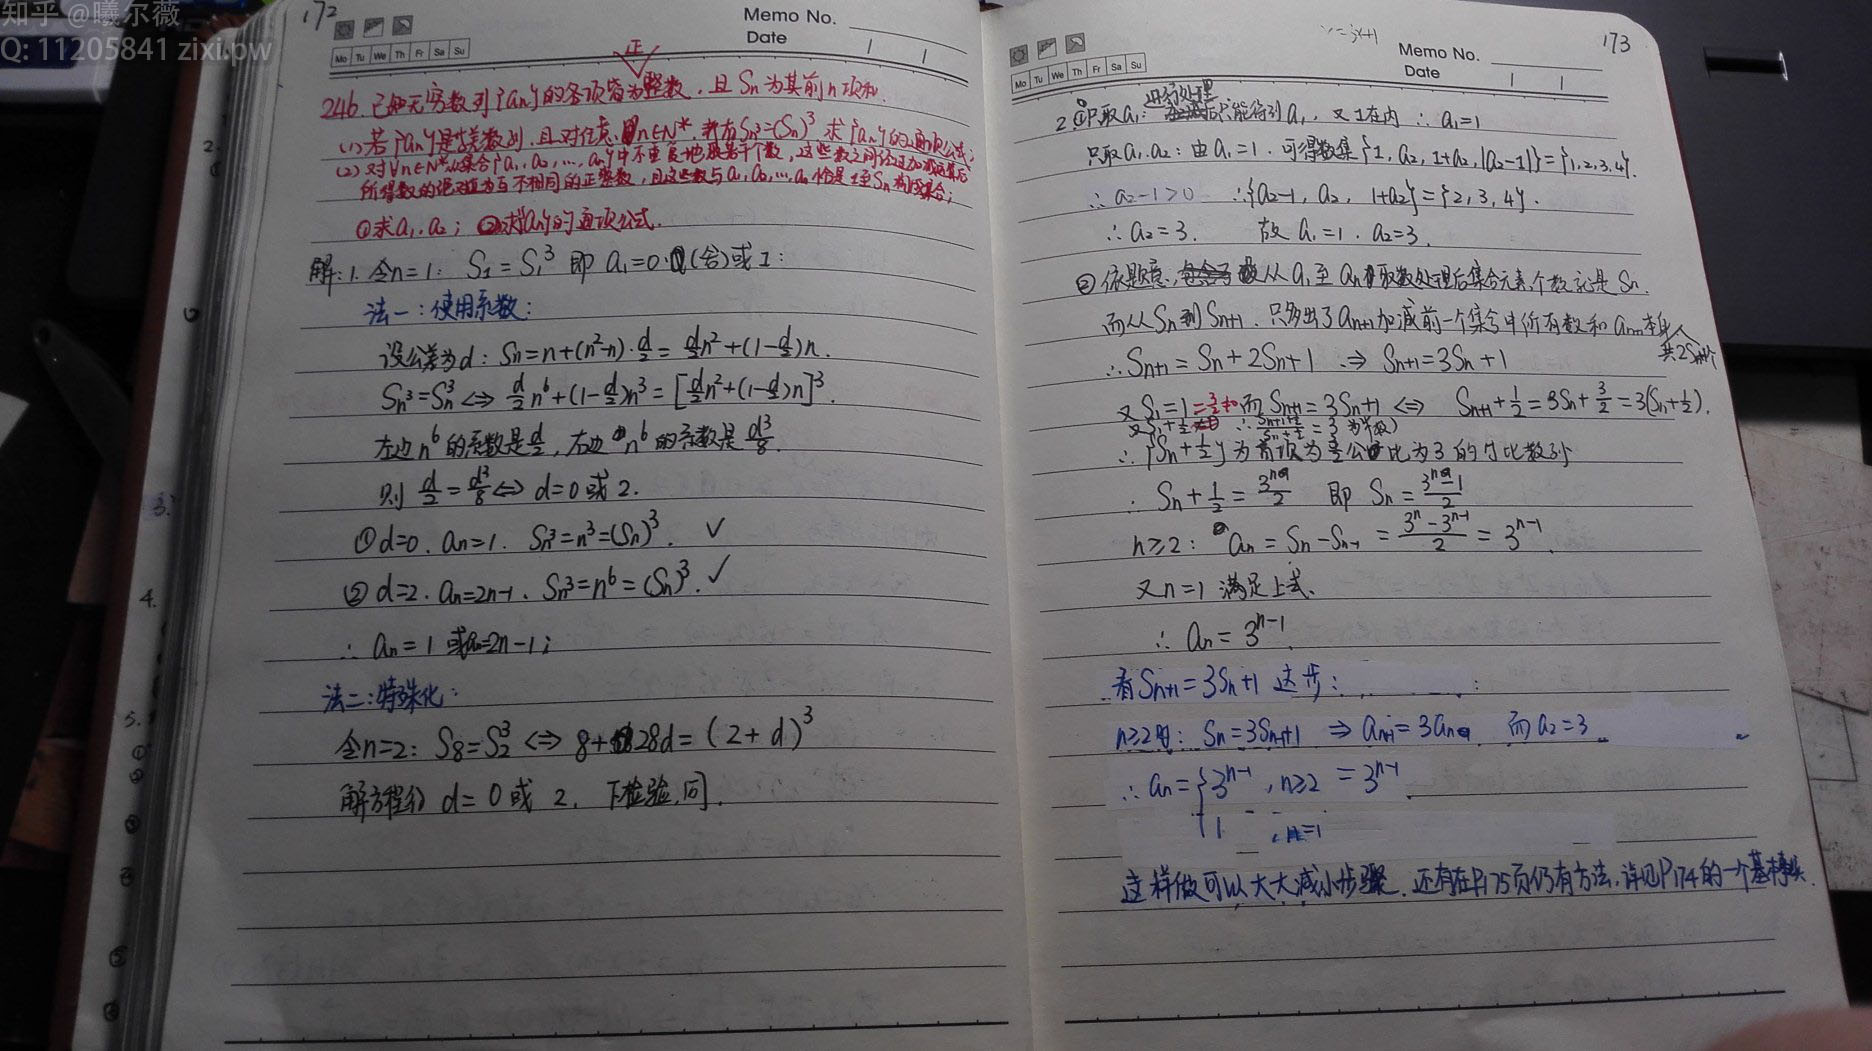 知乎 @曦尔薇
Q: 11205841 zixi.pw
172
Memo No.
Date
Mo Tu We Th Fr Sa Su
正
246. 已知无穷数列{an}的各项皆为整数, 且Sn为其前n项和.
(1) 若{an}是等差数列, 且对任意 n∈N*, 都有Sn³=(Sn)³, 求{an}的通项公式;
(2) 对∀n∈N*从集合{a₁, a₂, …, an}中不重复地取若干个数, 这些数之间经过加减运算后
所得数的绝对值为互不相同的正整数, 且这些数与a₁, a₂, …, an恰是1至Sn构成集合;
①求a₁, a₂; ②求{an}的通项公式.
解: 1. 令n=1: S₁=S₁³ 即 a₁=0 (舍)或1:
法一: 使用系数:
设公差为d: Sn=n+(n²-n)·d/2 = d/2n²+(1-d/2)n.
Sn³=Sn³ ⇔ d/2n⁶+(1-d/2)n³=[d/2n²+(1-d/2)n]³.
左边n⁶的系数是d/2, 右边n⁶的系数是d³/8.
则 d/2=d³/8 ⇔ d=0或2.
①d=0. an=1. Sn³=n³=(Sn)³. ✓
②d=2. an=2n-1. Sn³=n⁶=(Sn)³. ✓
∴ an=1 或an=2n-1;
法二: 特殊化:
令n=2: S8=S₂³ ⇔ 8+28d=(2+d)³
解方程得 d=0或2. 下检验, 同.
y=3x+1
173
Memo No.
Date
Mo Tu We Th Fr Sa Su
2. ①只取a₁: 进行处理后只能得到a₁, 又1在内 ∴ a₁=1
只取a₁, a₂: 由a₁=1. 可得数集{1, a₂, 1+a₂, |a₂-1|}={1,2,3,4}.
∴ a₂-1>0 ∴{a₂-1, a₂, 1+a₂}={2,3,4}.
∴ a₂=3. 故 a₁=1. a₂=3.
② 依题意, 从a₁至an取数处理后集合元素个数就是Sn.
而从Sn到Sn+1, 只多出了an+1加减前一个集合中所有数和an+1本身
共2Sn+1个
∴ Sn+1=Sn+2Sn+1 ⇒ Sn+1=3Sn+1
又S₁=1 而Sn+1=3Sn+1 ⇔ Sn+1+1/2=3Sn+3/2=3(Sn+1/2).
∴{Sn+1/2}为首项为3/2公比为3的等比数列
∴ Sn+1/2=3ⁿ/2 即 Sn=(3ⁿ-1)/2
n≥2: an=Sn-Sn-1=(3ⁿ-3ⁿ⁻¹)/2=3ⁿ⁻¹.
又n=1满足上式.
∴ an=3ⁿ⁻¹.
看Sn+1=3Sn+1 这步:
n≥2时: Sn=3Sn-1+1 ⇒ an+1=3an. 而a₂=3
∴ an={3ⁿ⁻¹, n≥2 =3ⁿ⁻¹.
1 , n=1
这样做可以大大减小步骤. 还有在P175页仍有方法, 详见P174的一个基本事实.